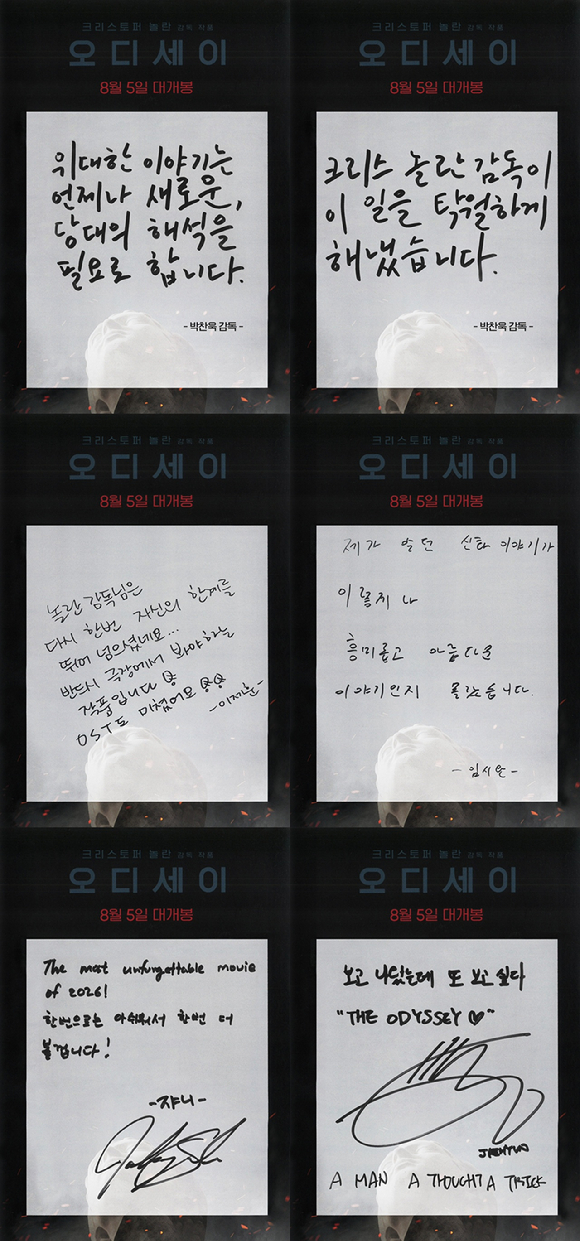 크리스토퍼 놀란 감독 작품
오디세이
8월 5일 대개봉
위대한 이야기는
언제나 새로운,
당대의 해석을
필요로 합니다.
- 박찬욱 감독 -
크리스토퍼 놀란 감독 작품
오디세이
8월 5일 대개봉
크리스 놀란 감독이
이 일을 탁월하게
해냈습니다.
- 박찬욱 감독 -
크리스토퍼 놀란 감독 작품
오디세이
8월 5일 대개봉
놀란 감독님은
다시 한번 자신의 한계를
뛰어 넘으셨네요...
반드시 극장에서 봐야하는
작품입니다
OST도 미쳤어요
-이제훈-
크리스토퍼 놀란 감독 작품
오디세이
8월 5일 대개봉
제가 알던 신화 이야기가
이렇게나
흥미롭고 아름다운
이야기인지 몰랐습니다.
- 임시완 -
크리스토퍼 놀란 감독 작품
오디세이
8월 5일 대개봉
The most unforgettable movie
of 2026!
한번으로는 아쉬워서 한번 더
볼겁니다!
-쟈니-
크리스토퍼 놀란 감독 작품
오디세이
8월 5일 대개봉
보고 나왔는데 또 보고 싶다
"THE ODYSSEY ♡"
JAEHYUN
A MAN A THOUGHT A TRICK